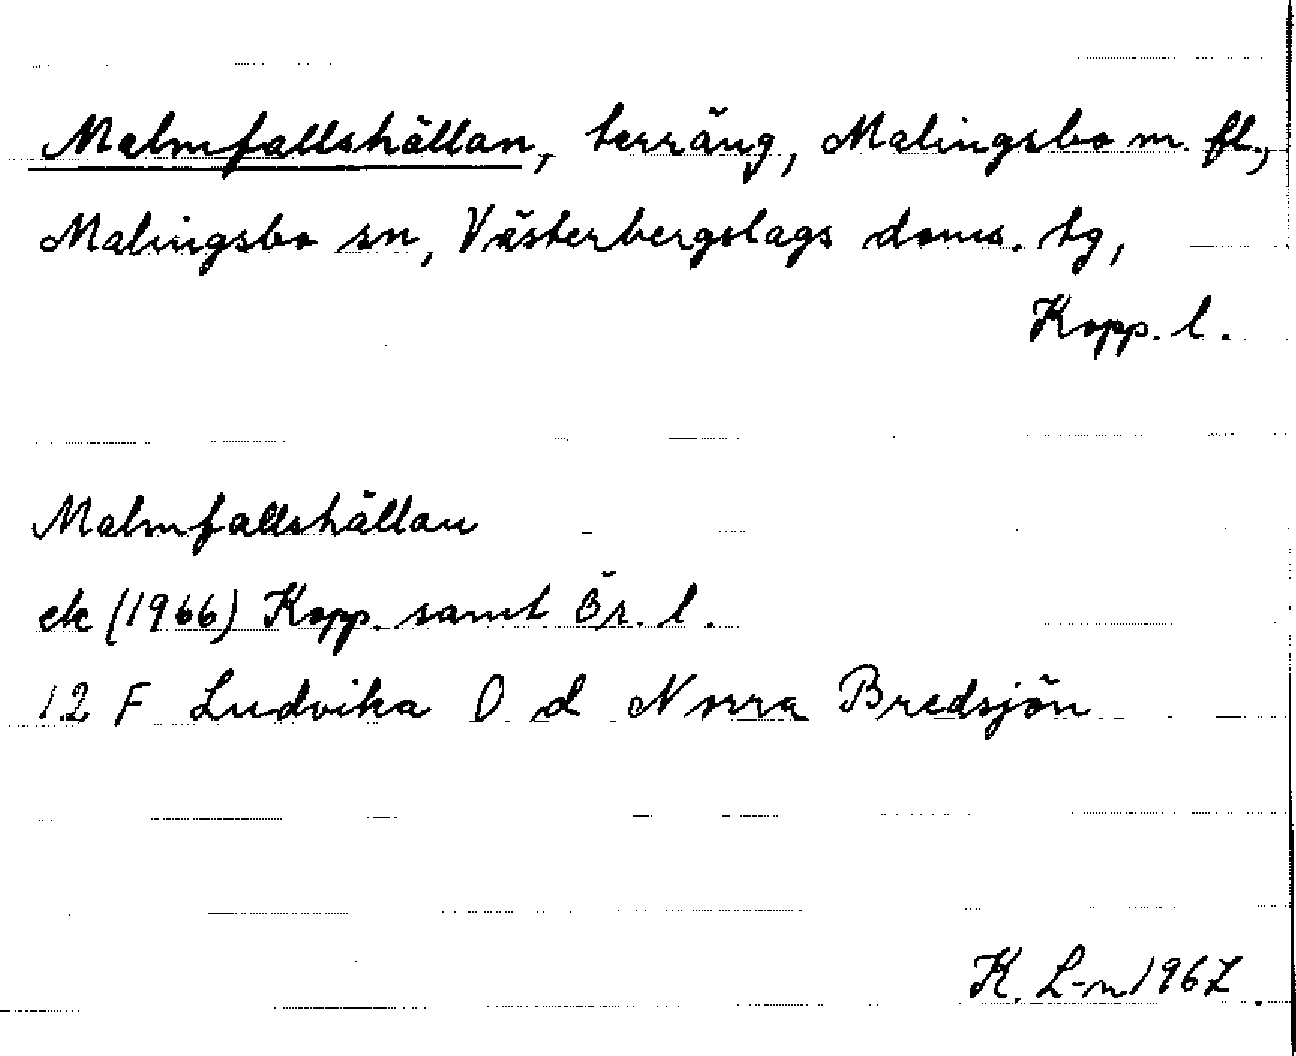 Malmfallshällan, terräng, Malingsbo m. fl.,
Malingsbo sn, Västerbergslags doms. tg,
Kopp. l.
Malmfallshällan
ek (1966) Kopp. samt Ör. l.
12 F Ludvika 0 d Norra Bredsjön
K. L-n 1967.